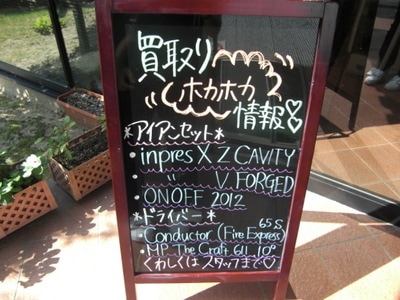 買取り
ホカホカ
情報♡
*アイアンセット*
・inpres X Z CAVITY
〃 V.FORGED
・ONOFF 2012
*ドライバー*
65S
・Conductor (Fire Express)
・MP The Craft 611 10°
くわしくは スタッフまで♡